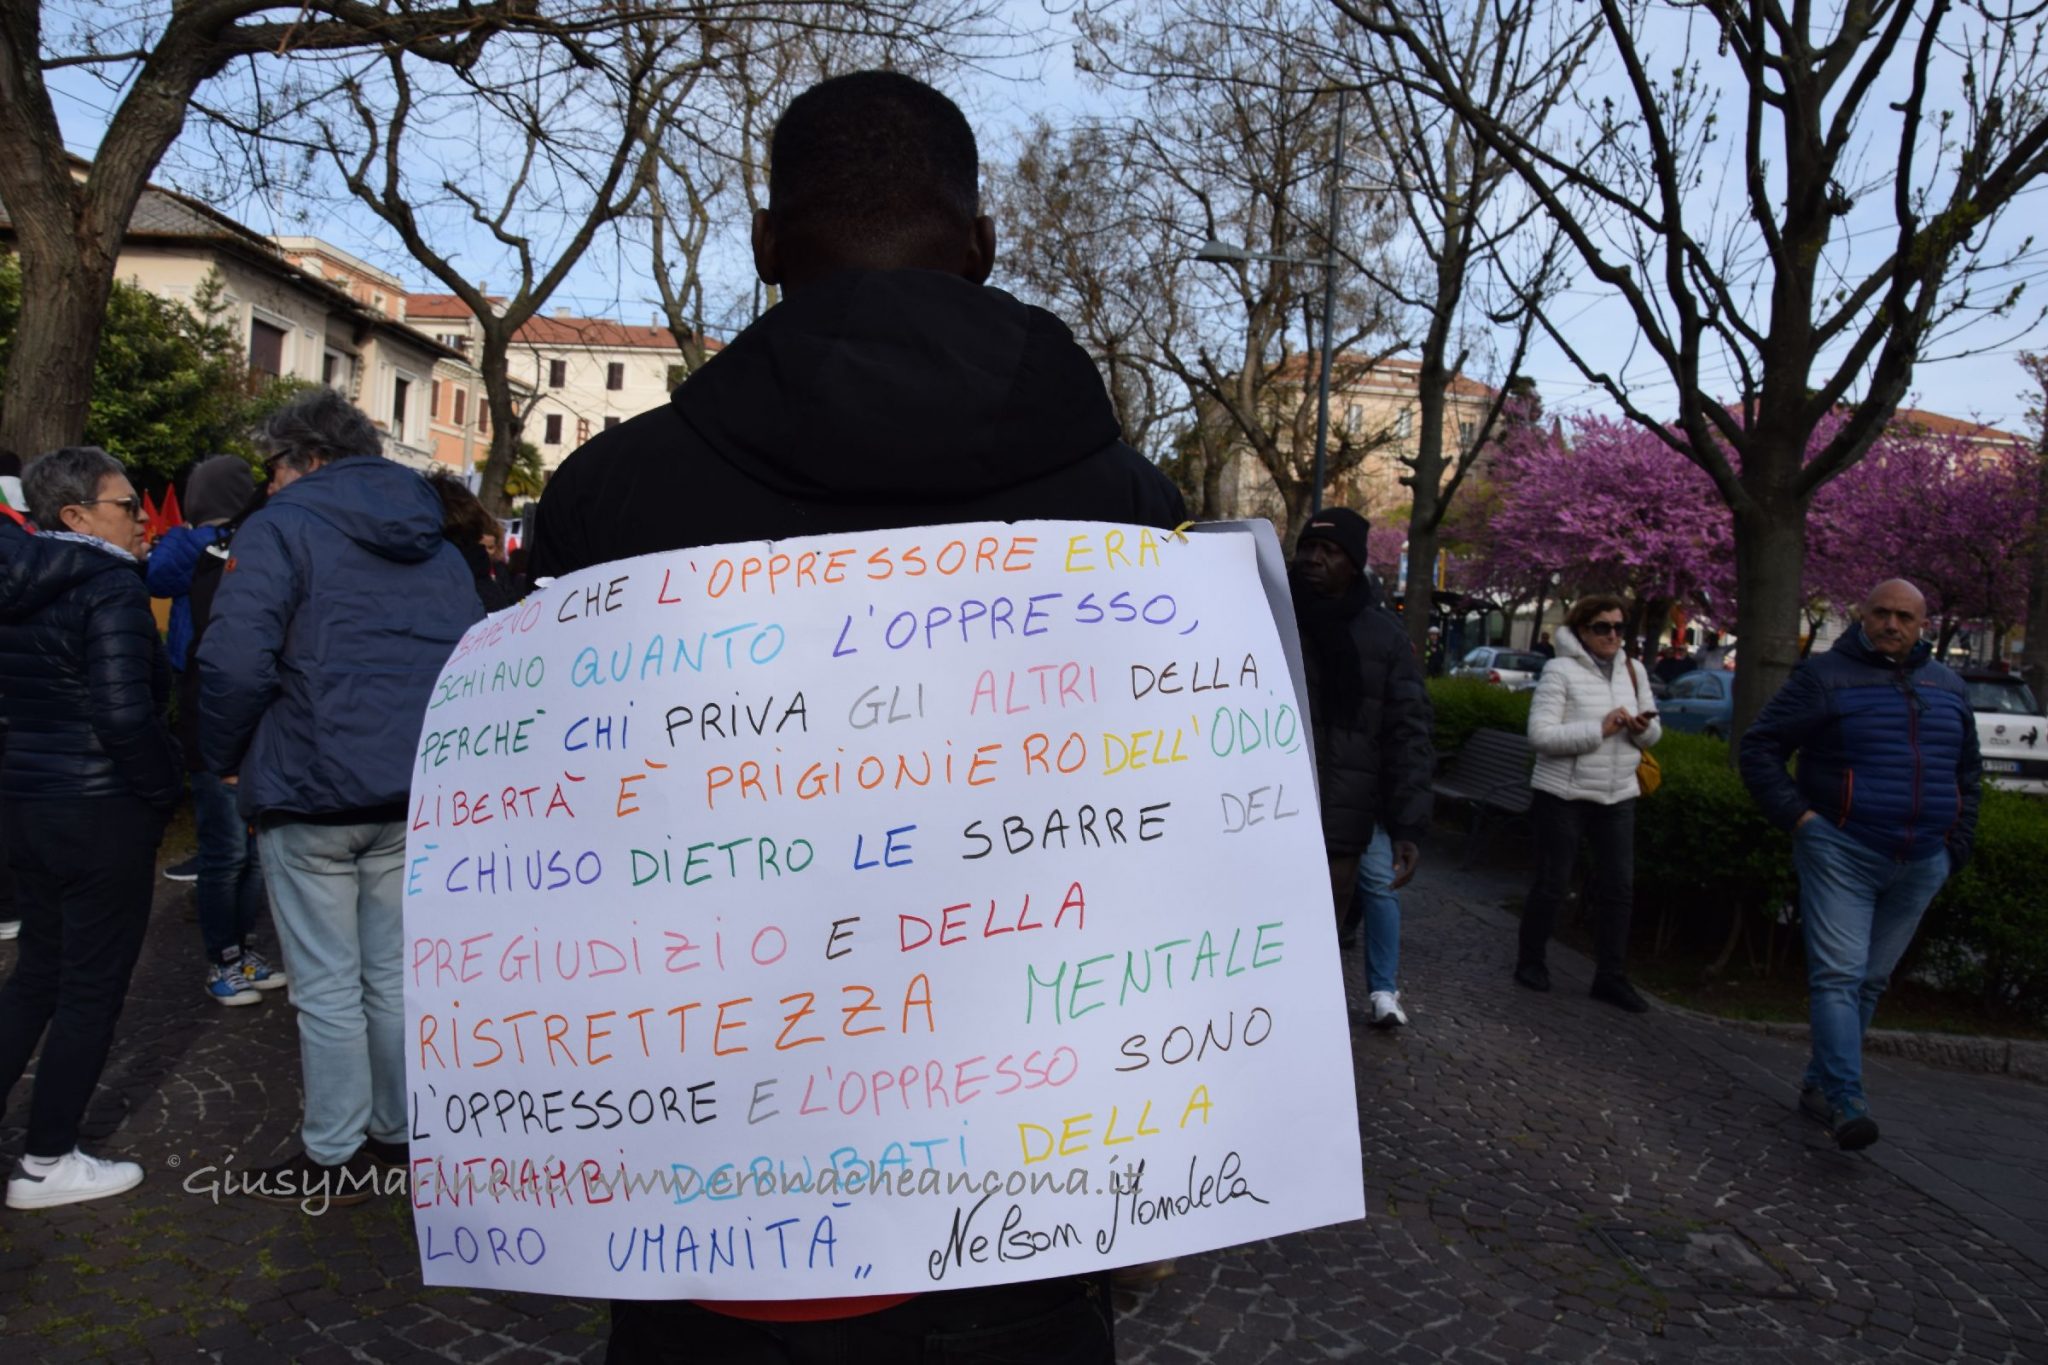 SAPEVO CHE L'OPPRESSORE ERA
SCHIAVO QUANTO L'OPPRESSO,
PERCHÈ CHI PRIVA GLI ALTRI DELLA
LIBERTÀ È PRIGIONIERO DELL'ODIO,
È CHIUSO DIETRO LE SBARRE DEL
PREGIUDIZIO E DELLA
RISTRETTEZZA MENTALE
L'OPPRESSORE E L'OPPRESSO SONO
ENTRAMBI DERUBATI DELLA
LORO UMANITÀ„ Nelson Mandela
©GiusyMarinelli/www.cronacheancona.it